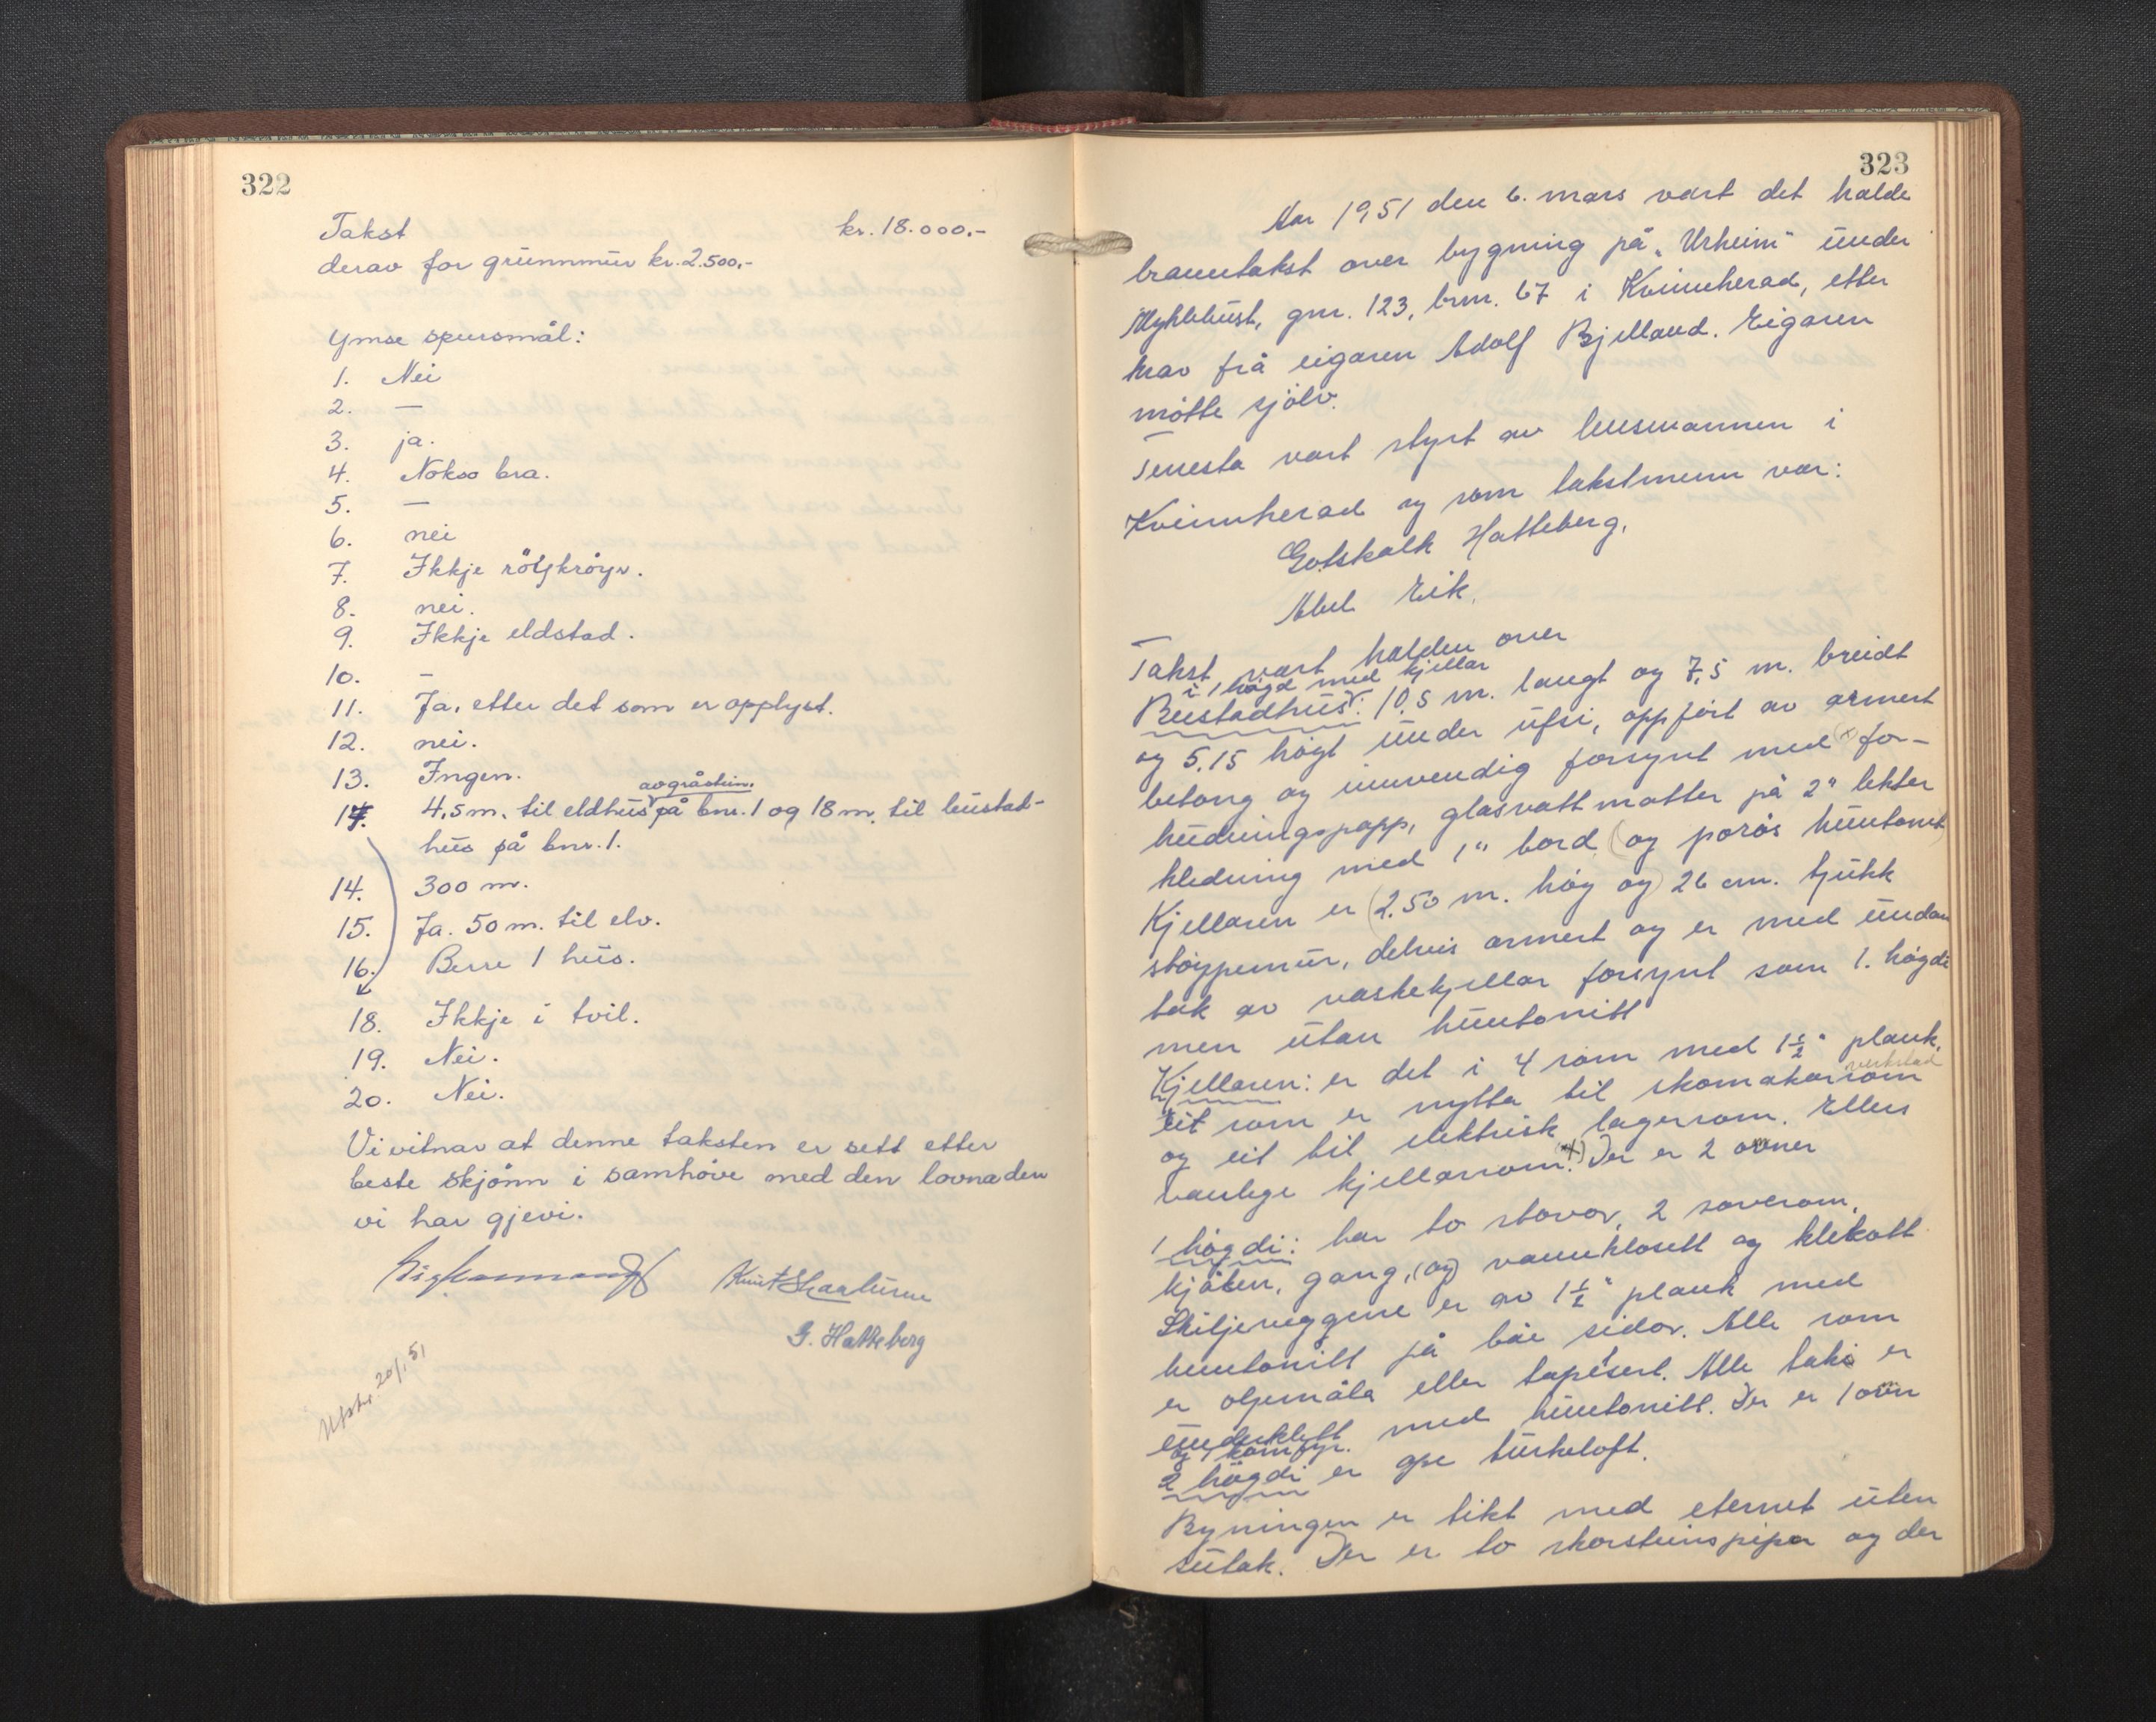 322
Takst kr. 18.000,-
derav for grunnmur kr. 2.500,-
Ymse spursmål:
1. Nei
2. —
3. ja.
4. Nokso bra.
5. —
6. nei
7. Ikkje röykröyr.
8. nei.
9. Ikkje eldstad.
10. –
11. Ja, etter det som er opplyst.
12. nei.
13. Ingen.
av gråstein.
17. 4,5 m. til eldhus på bnr. 1 og 18 m. til bustad-
hus på bnr. 1.
14. 300 m.
15. Ja. 50 m. til elv.
16. Berre 1 hus.
18. Ikkje i tvil.
19. Nei.
20. Nei.
Vi vitnar at denne taksten er sett etter
beste skjönn i samhöve med den lovnaden
vi har gjevi.
Knut Skaalurun
G. Hatteberg
Utskr. 20/1 51
323
Aar 1951 den 6. mars vart det halde
branntakst over bygning på „Urheim" under
Myklebust, gnr. 123, bnr. 67 i Kvinnherad, etter
krav frå eigaren Adolf Bjelland. Eigaren
møtte sjølv.
Tenesta vart styrt av lensmannen i
Kvinnherad og som takstmenn var:
Gotskalk Hatteberg.
Abel Eik.
Takst vart halden over
i 1 høgd med kjellar
Bustadhus: 10,5 m. langt og 7,5 m. breidt
og 5,15 høgt under ufsi, oppført av armert
betong og innvendig forsynt med (x) for-
hudningspapp, glasvattmatter på 2" lekter
kledning med 1" bord (og porøs huntonit)
Kjellaren er (2.50 m. høg og) 26 cm. tjukk
støypemur, delvis armert og er med undan
tak av vaskekjellar forsynt som 1. høgdi
men utan huntonitt
Kjellaren: er det i 4 rom med 1½" plank,
verkstad
eit rom er nytta til skomakarrom
og eit til elektrisk lagerrom. Ellers
vanlege kjellarrom. (x) Der er 2 ovner
1 høgdi: har to stovor, 2 soverom,
kjøken, gang, (og) vannklosett og klekott
Skiljeveggene er av 1½" plank med
huntonitt på båe sidor. Alle rom
er oljemåla eller tapesert. Alle taki er
underkledt med huntonitt. Der er 1 ovn
og 1 komfyr.
2 høgdi er ope turkeloft.
Byningen er tekt med eternit uten
sutak. Der er to skorsteinspipor og der